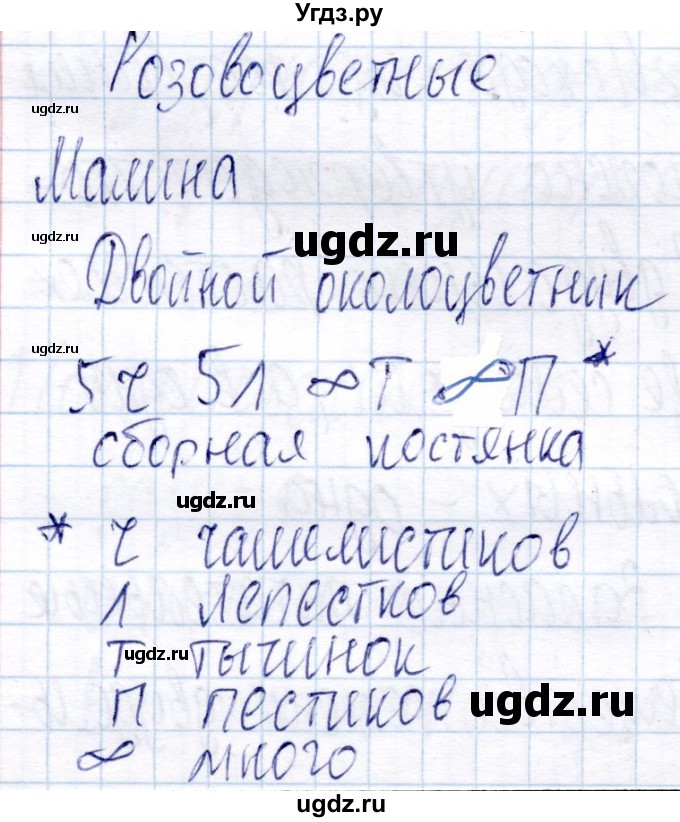 Угдз.ру
Розовоцветные
ugdz.ru
Малина
ugdz.ru
ugdz.ru
Двойной околоцветник
ugdz.ru
5ч 5л ∞Т ∞П *
сборная костянка
ugdz.ru
* Ч чашелистиков
Л лепестков
Т тычинок
ugdz.ru
П пестиков
ugdz.ru
∞ много
ugdz.ru